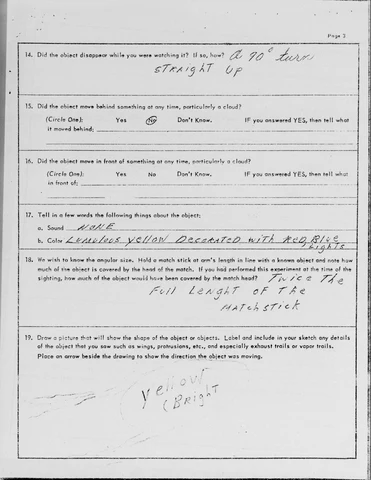 Page 3
14. Did the object disappear while you were watching it? If so, how? a 90° turn
STRAIGHT UP
15. Did the object move behind something at any time, particularly a cloud?
(Circle One): Yes No Don't Know. IF you answered YES, then tell what
it moved behind:
16. Did the object move in front of something at any time, particularly a cloud?
(Circle One): Yes No Don't Know. IF you answered YES, then tell what
in front of:
17. Tell in a few words the following things about the object:
a. Sound NONE
b. Color LUMULOUS YELLOW DECORATED WITH RED, BLUE
LIGHTS
18. We wish to know the angular size. Hold a match stick at arm's length in line with a known object and note how
much of the object is covered by the head of the match. If you had performed this experiment at the time of the
sighting, how much of the object would have been covered by the match head? TWICE THE
FULL LENGHT OF THE
MATCHSTICK
19. Draw a picture that will show the shape of the object or objects. Label and include in your sketch any details
of the object that you saw such as wings, protrusions, etc., and especially exhaust trails or vapor trails.
Place an arrow beside the drawing to show the direction the object was moving.
yellow
(BRIGHT